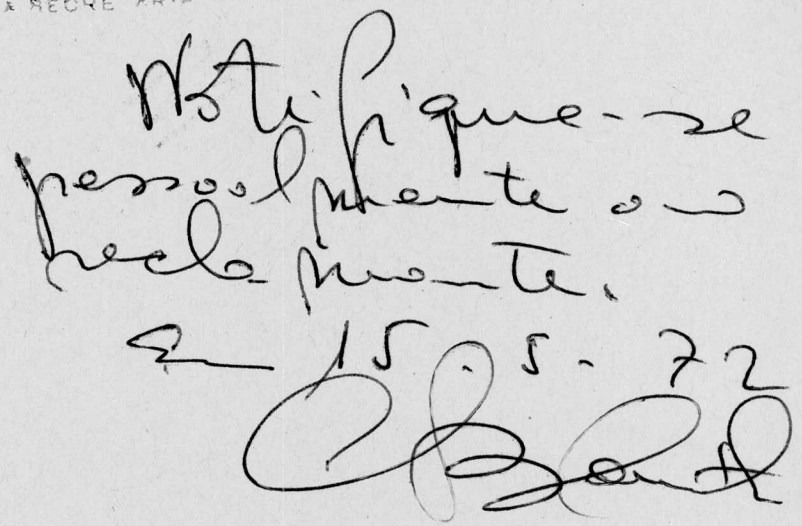 Notifique-se
pessoalmente o
reclamante.
Em 15.5.72